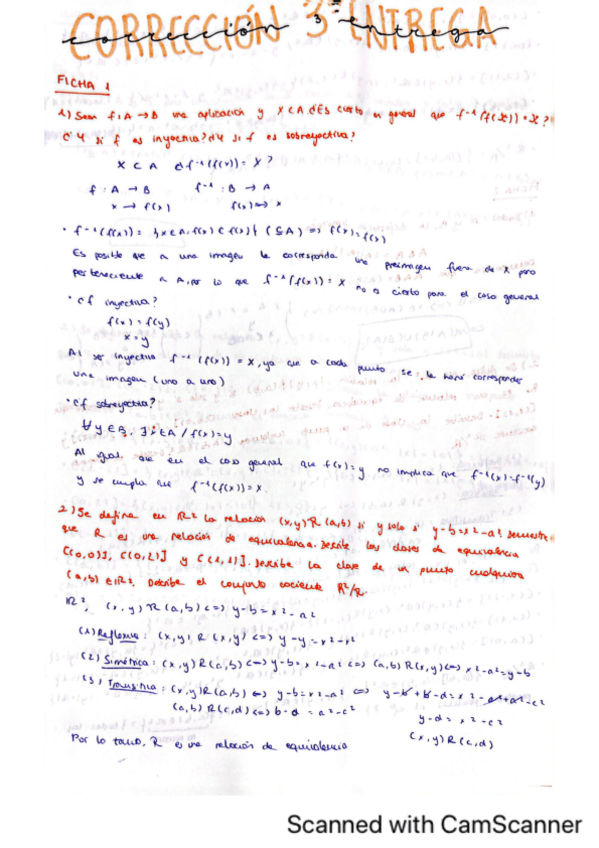 CORRECCIÓN 3ª ENTREGA
corrección 3ª entrega
FICHA 1
1) Sean f: A → B una aplicación y X ⊂ A. ¿Es cierto en general que f⁻¹(f(X)) = X?
¿Y si f es inyectiva? ¿Y si f es sobreyectiva?
X ⊂ A ¿f⁻¹(f(x)) = X?
f : A → B f⁻¹ : B → A
x → f(x) f(x) → x
· f⁻¹(f(x)) = {x ∈ A, f(x) ∈ f(x)} (⊆ A) => f(x) = f(x)
Es posible que a una imagen le corresponda una preimagen fuera de X pero
perteneciente a A, por lo que f⁻¹(f(x)) = X no es cierto para el caso general
· ¿f inyectiva?
f(x) = f(y)
x = y
Al ser inyectiva f⁻¹(f(x)) = X, ya que a cada punto se le hace corresponder
una imagen (uno a uno)
· ¿f sobreyectiva?
∀y ∈ B, ∃x ∈ A / f(x) = y
Al igual que en el caso general que f(x) = y no implica que f⁻¹(x) = f⁻¹(y)
y se cumpla que f⁻¹(f(x)) = X.
2) Se define en R² la relación (x,y) R (a,b) si y solo si y-b = x²-a². Demuestre
que R es una relación de equivalencia. Describe las clases de equivalencia
C[(0,0)], C[(0,2)] y C[(1,1)]. Describe la clase de un punto cualquiera
(a,b) ∈ R². Describe el conjunto cociente R²/R.
R², (x,y) R (a,b) <=> y-b = x²-a²
(1) Reflexiva : (x,y) R (x,y) <=> y-y = x²-x²
(2) Simétrica : (x,y) R (a,b) <=> y-b = x²-a² <=> (a,b) R (x,y) <=> x²-a² = y-b
(3) Transitiva : (x,y) R (a,b) <=> y-b = x²-a² <=> y-b+b-d = x²-a²+a²-c²
(a,b) R (c,d) <=> b-d = a²-c² y-d = x²-c²
(x,y) R (c,d)
Por lo tanto, R es una relación de equivalencia
Scanned with CamScanner